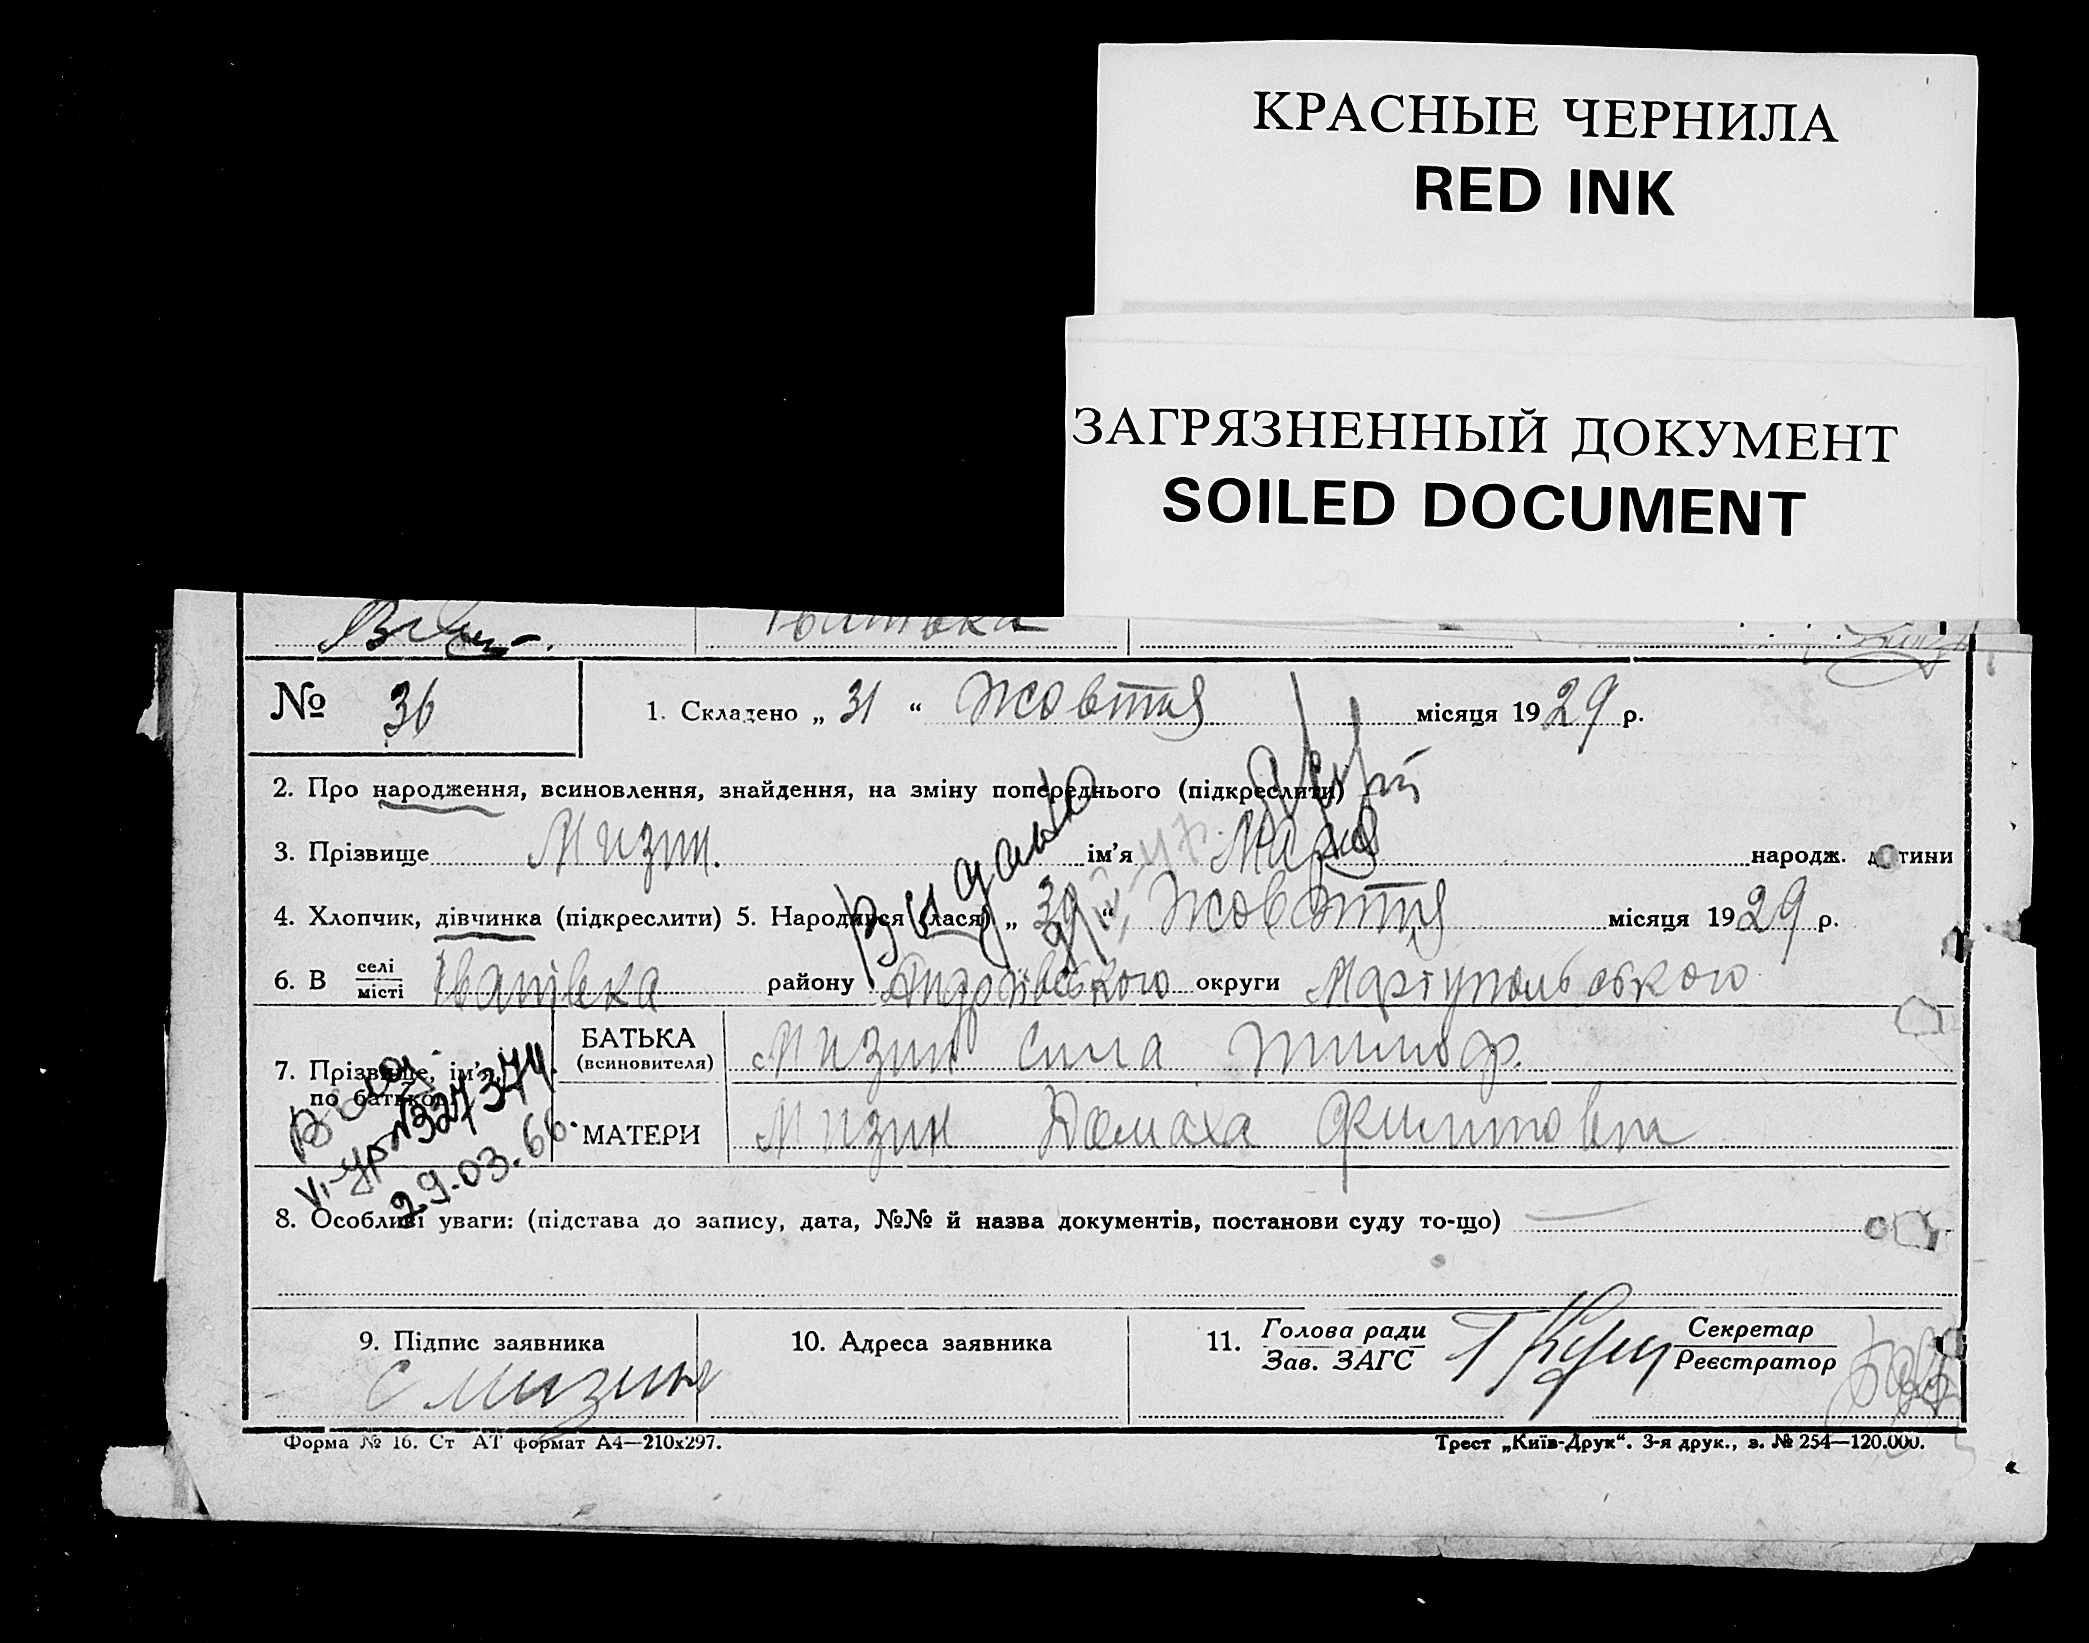 КРАСНЫЕ ЧЕРНИЛА
RED INK
ЗАГРЯЗНЕННЫЙ ДОКУМЕНТ
SOILED DOCUMENT
№ 36 1. Складено „ 31 “ Жовтня місяця 1929 р.
2. Про народження, всиновлення, знайдення, на зміну попереднього (підкреслити)
3. Прізвище Мизин. ім'я Марія народж. дитини
4. Хлопчик, дівчинка (підкреслити) 5. Народився (лася) „ 30 “ Жовтня місяця 1929 р.
6. В селі місті Іванівка району Андріївського округи Маріупольського
7. Прізвище, ім'я, по батькові
БАТЬКА (всиновителя) Мизин Сила Тимоф.
МАТЕРИ Мизин Домаха Филиповна
Видано
29.03.66.
8. Особливі уваги: (підстава до запису, дата, №№ й назва документів, постанови суду то-що)
9. Підпис заявника 10. Адреса заявника 11. Голова ради Зав. ЗАГС Секретар Реєстратор
С Мизин
Форма № 16. Ст АТ формат А4—210х297. Трест „Київ-Друк“. 3-я друк., з. № 254—120.000.